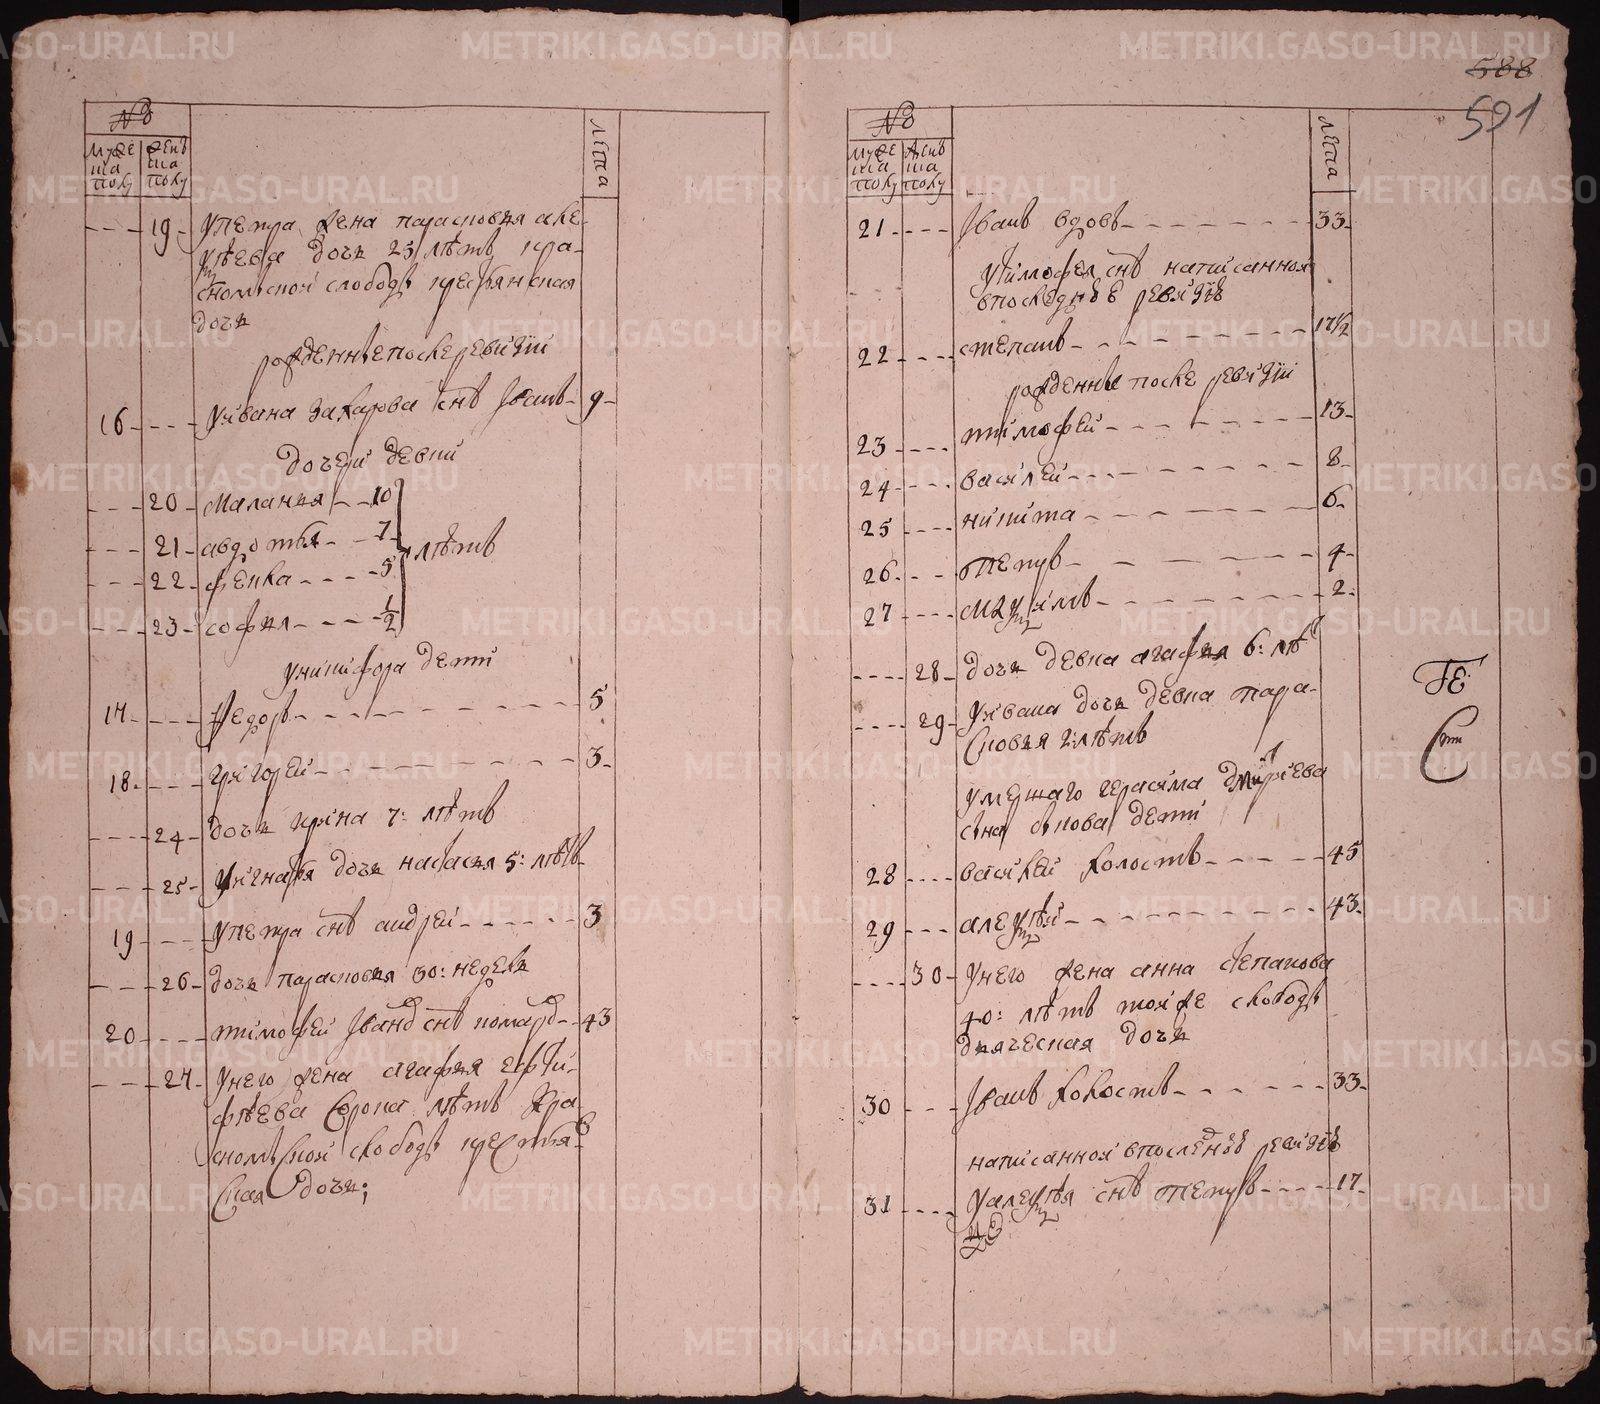 METRIKI.GASO-URAL.RU
№
мужеска полу
женска полу
лѣта
19 у петра жена парасковья алек
сѣева дочь 25 лѣтъ кра
сномыской слободы крестьянская
дочь
рожденные после ревизии
16 у ивана захарова снъ Иванъ 9
дочери девки
20 Маланья 10
21 авдотья 7 лѣтъ
22 фекла 5
23 софья 1/2
у никифора дети
17 Федоръ 5
18 григорей 3
24 дочь ирина 7: лѣтъ
25 у игнатья дочь настасья 5: лѣтъ
19 у петра снъ андрей 3
26 дочь парасковья 30: недель
20 тимофей Ивановъ снъ 43
27 у него жена агафья
Сорока лѣтъ Кра
сномыской слободы крестьян
ская дочь;
588
591
№
мужеска полу
женска полу
лѣта
21 Иванъ вдовъ 33
у тимофея снъ написанной
в последней ревизіи
22 степанъ 17 1/2
рожденные после ревизіи
23 тимофей 13
24 василей 8
25 никита 6
26 петръ 4
27 максимъ 2
28 дочь девка агафья 6: лѣ
29 у ивана дочь девка пара
сковья 2: лѣтъ
умершаго герасима дмитриева
сна снова дети
28 василей холостъ 45
29 алексѣй 43
30 у него жена анна степанова
40: лѣтъ той же слободы
дьяческая дочь
30 Иванъ холостъ 33
написанной в последней ревизіи
31 у алексѣя снъ петръ 17